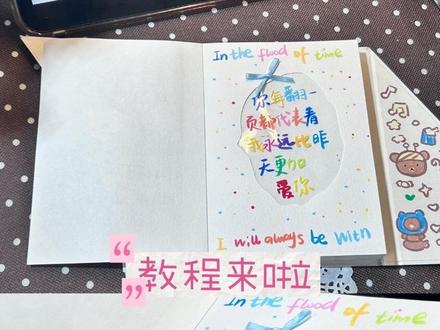 In the flood of time
你每翻一
页都代表着
我永远比昨
天更加
爱你
I will always be with
“教程来啦
In the flood of time